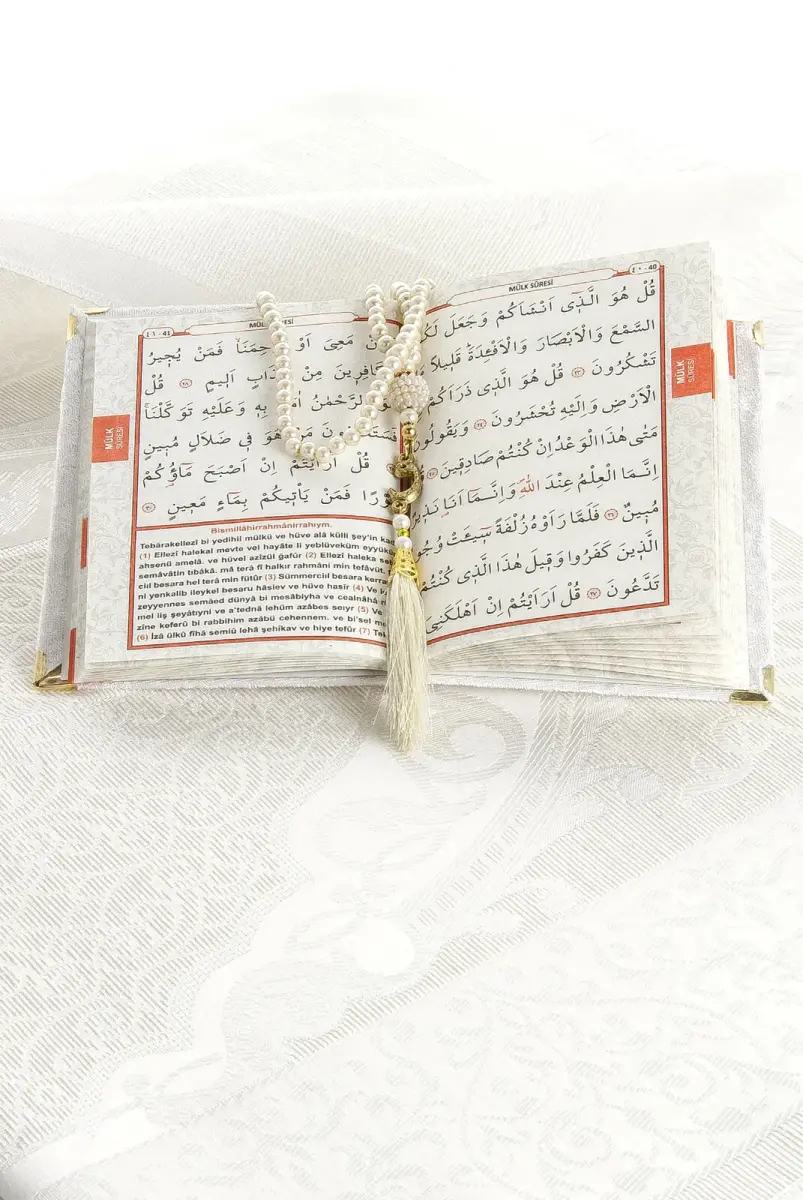 ٤٠ - 40
MÜLK SÛRESİ
قُلْ هُوَ الَّذٖٓى اَنْشَاَكُمْ وَجَعَلَ
السَّمْعَ وَالْاَبْصَارَ وَالْاَفْـِٕدَةَ قَلٖيلًا
تَشْكُرُونَ ﴿٢٣﴾ قُلْ هُوَ الَّذٖى ذَرَاَكُمْ
الْاَرْضِ وَاِلَيْهِ تُحْشَرُونَ ﴿٢٤﴾ وَيَقُولُونَ
مَتٰى هٰذَا الْوَعْدُ اِنْ كُنْتُمْ صَادِقٖينَ
اِنَّمَا الْعِلْمُ عِنْدَ اللّٰهِ وَاِنَّمَٓا اَنَا۬ نَذٖيرٌ
مُبٖينٌ ﴿٢٦﴾ فَلَمَّا رَاَوْهُ زُلْفَةً سٖٓيـَٔتْ
الَّذٖينَ كَفَرُوا وَقٖيلَ هٰذَا الَّذٖى كُنْتُمْ
تَدَّعُونَ ﴿٢٧﴾ قُلْ اَرَاَيْتُمْ اِنْ اَهْلَكَنِىَ
MÜLK
SÛRESİ
٤١ - 41
مَعِىَ اَوْ فَمَنْ يُجٖيرُ
مِنْ اَلٖيمٍ ﴿٢٨﴾ قُلْ
الرَّحْمٰنُ بِهٖ وَعَلَيْهِ تَوَكَّلْنَا
هُوَ فٖى ضَلَالٍ مُبٖينٍ
قُلْ اَرَاَيْتُمْ اِنْ اَصْبَحَ مَٓاؤُ۬كُمْ
فَمَنْ يَاْتٖيكُمْ بِمَٓاءٍ مَعٖينٍ ﴿٣٠﴾
MÜLK
SÛRESİ
Bismillâhirrahmânirrahıym.
Tebârakellezî bi yedihil mülkü ve hüve alâ külli şey'in
(1) Ellezî halekal mevte vel hayâte li yeblüveküm eyyüküm
ahsenü amelâ. ve hüvel azîzül ğafûr (2) Ellezî haleka
semâvâtin tıbâkâ. mâ terâ fî halkır rahmâni min tefâvüt.
cııl besara hel terâ min fütûr (3) Sümmerciıl besara
ni yenkalib ileykel besaru hâsiev ve hüve hasîr (4) Ve
zeyyennes semâed dünyâ bi mesâbiyha ve cealnâhâ
mel liş şeyâtıyni ve a'tednâ lehüm azâbes seıyr (5) Ve
zîne keferû bi rabbihim azâbü cehennem. ve bi'sel
(6) İzâ ülkû fîhâ semiû lehâ şehîkav ve hiye tefûr (7)